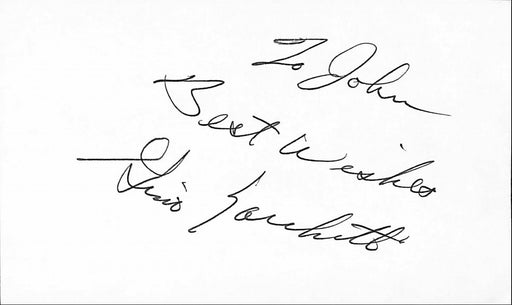 To John
Best Wishes
Gino Marchetti